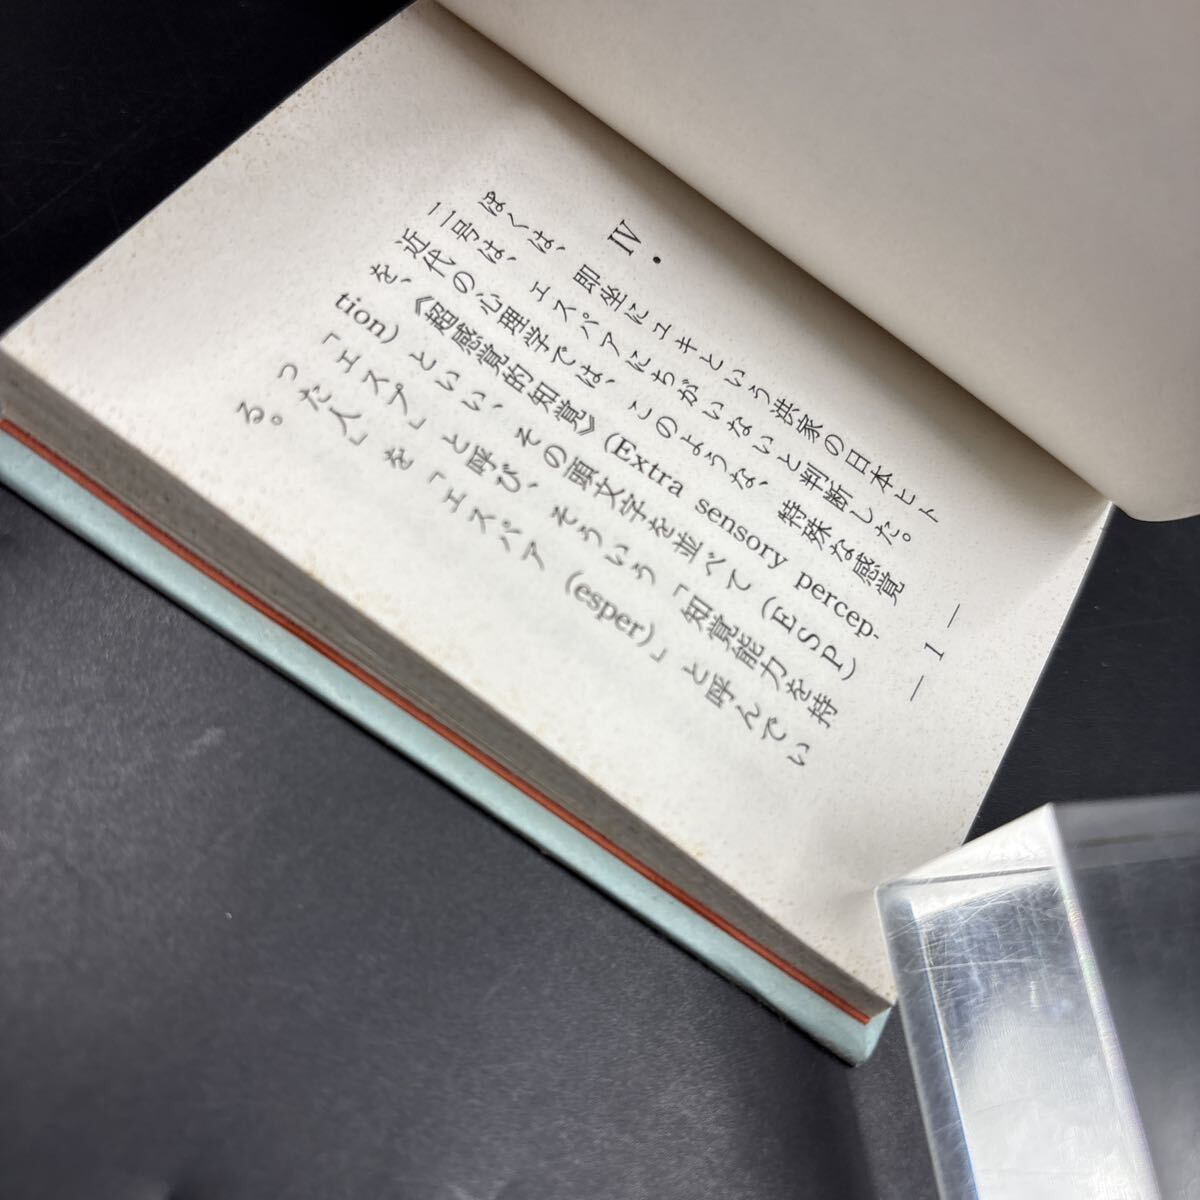 IV.
ぼくは、即坐にユキという洪家の日本ヒト
二号は、エスパアにちがいないと判断した。
近代の心理学では、このような、特殊な感覚
を、《超感覚的知覚》(Extra sensory percep-
tion) といい、その頭文字を並べて (ESP)
「エスプ」と呼び、そういう「知覚能力を持
った人」を「エスパア (esper)」と呼んでい
る。
— 1 —